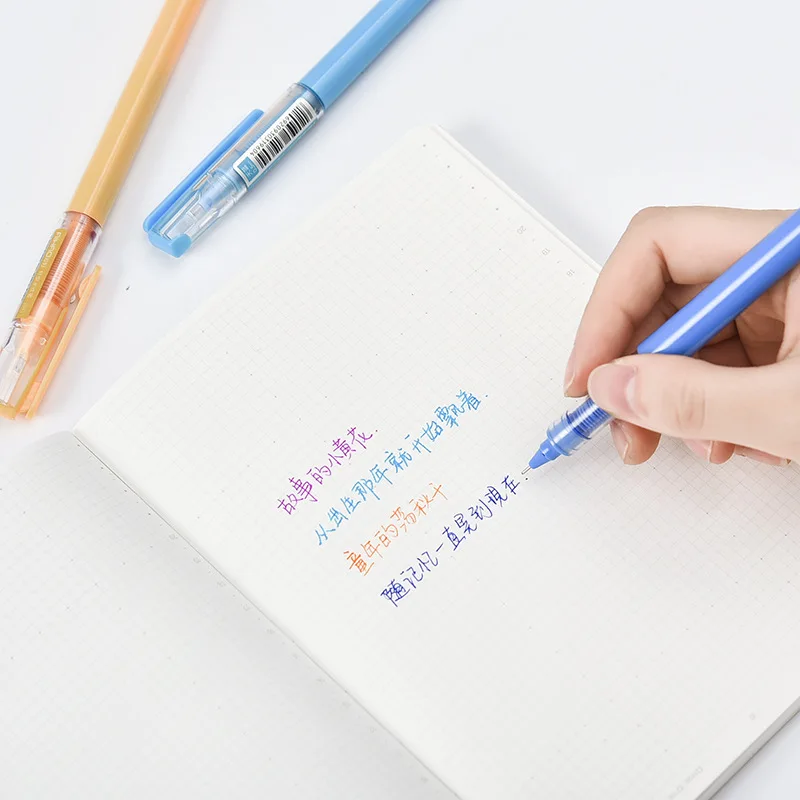 故事的小黄花.
从出生那年就开始飘着.
童年的荡秋千
随记忆一直晃到现在.